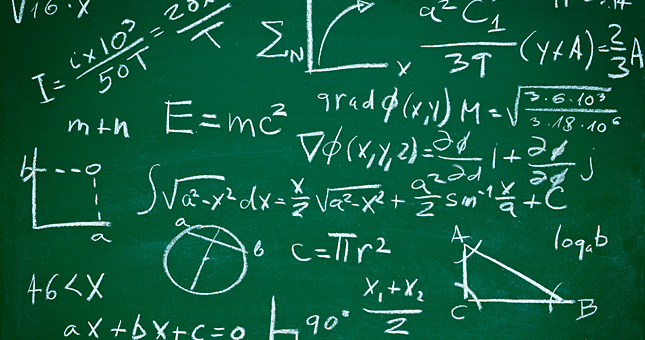 √16·x
I = i×10³/50T = 20x/T
Σ_N
x
a²C₁/3T (y+A) = 2/3 A
m+n
E=mc²
grad ϕ(x,y) M = √(3·6·10³/3·18·10⁶)
∇ϕ(x,y,z) = ∂ϕ/∂d i + ∂ϕ/∂ϕ j
b
a
∫√a²-x² dx = x/2 √a²-x² + a²/2 sin⁻¹ x/a + C
a
b
c=πr²
A
C
B
logₐb
46<X
x₁+x₂/2
ax+bx+c=0
90°